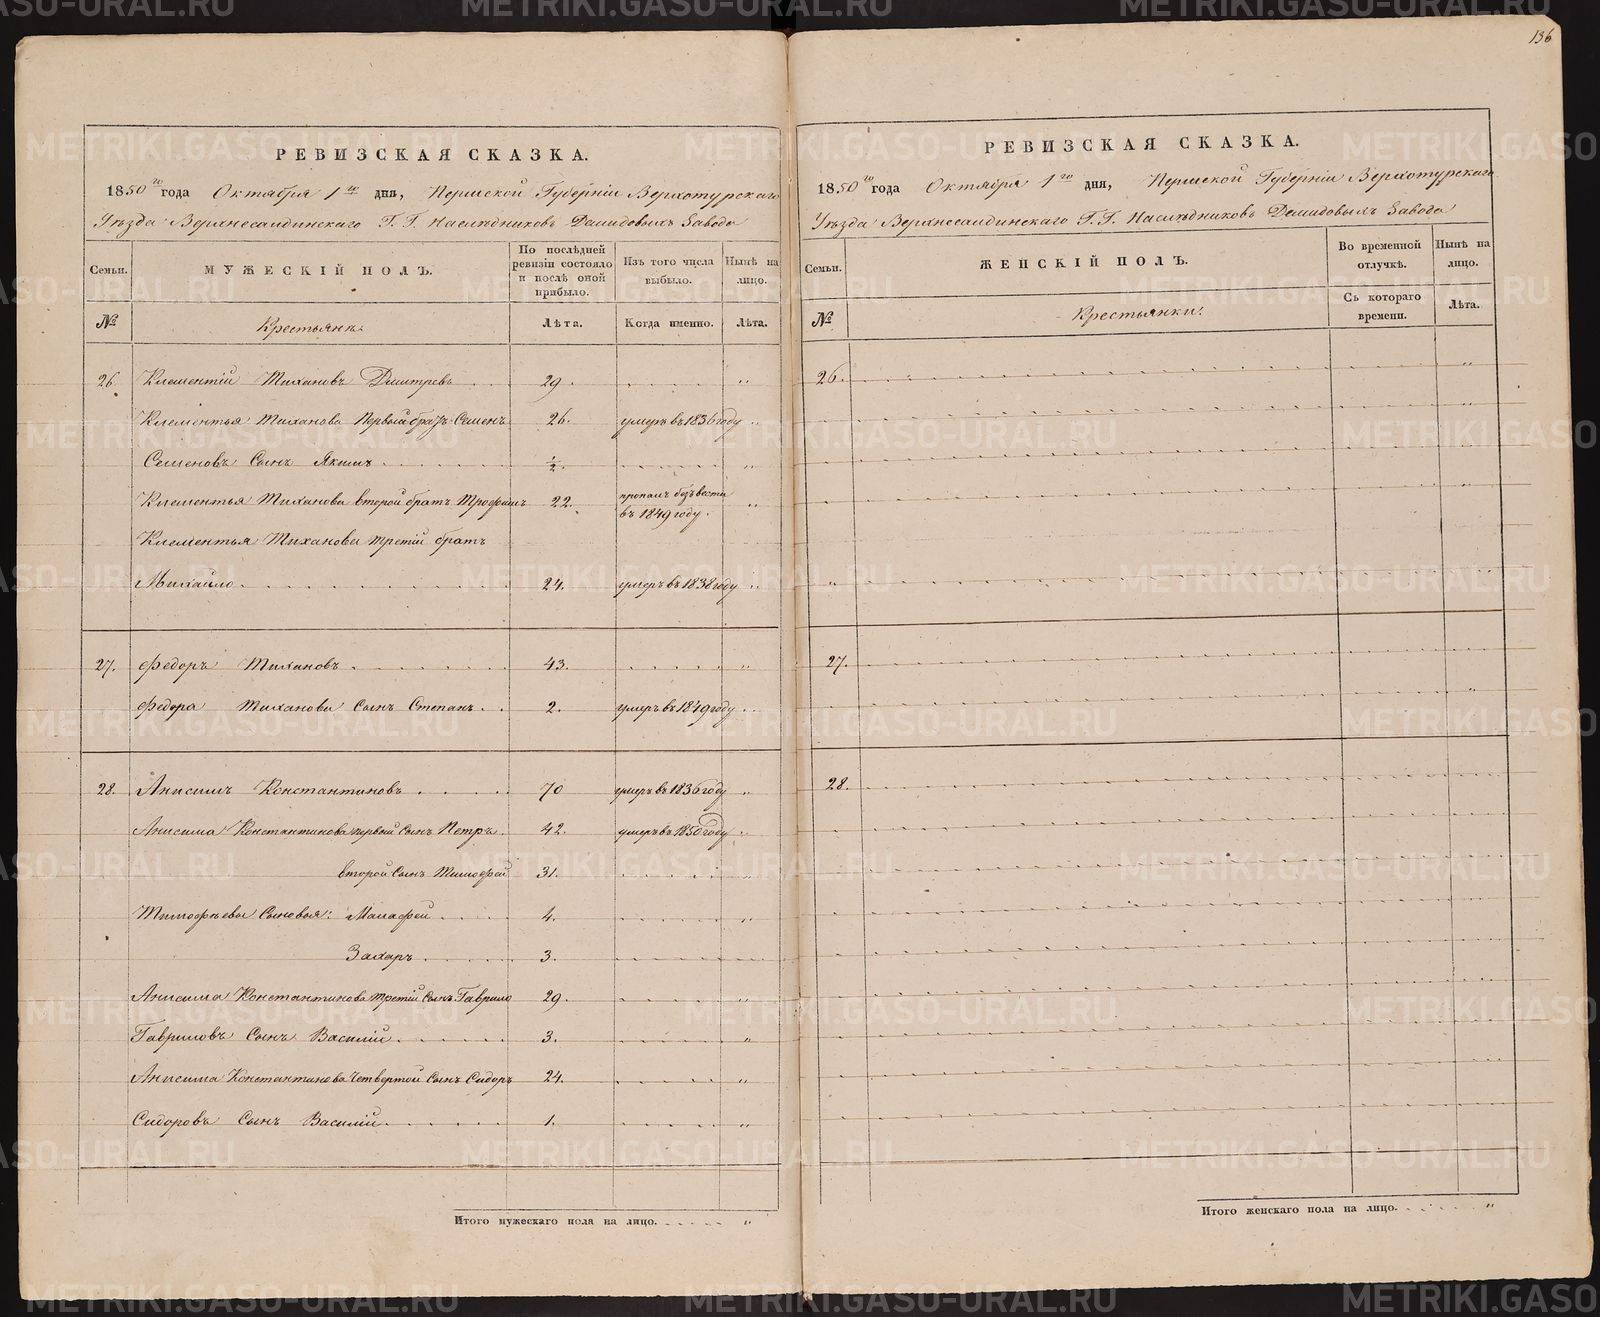 136
РЕВИЗСКАЯ СКАЗКА.
1850го года Октября 1го дня, Пермской Губерніи Верхотурскаго
Уѣзда Верхнесалдинскаго Г. Г. Наслѣдниковъ Демидовыхъ Завода
Семьи. МУЖЕСКІЙ ПОЛЪ. По послѣдней ревизіи состояло и послѣ оной прибыло. Изъ того числа выбыло. Нынѣ на лицо.
№ Крестьяне. Лѣта. Когда именно. Лѣта.
26. Клементій Тихановъ Дмитревъ 29. "
Клементья Тиханова Первой братъ Семенъ 26. умеръ въ 1836 году "
Семеновъ Сынъ Якимъ ½. "
Клементья Тиханова второй братъ Трофимъ 22. пропалъ безъ вести въ 1849 году. "
Клементья Тиханова третій братъ
Михайло 24. умеръ въ 1838 году "
27. Федоръ Тихановъ 43. "
Федора Тиханова Сынъ Степанъ 2. умеръ въ 1849 году "
28. Анисимъ Константиновъ 70 умеръ въ 1836 году "
Анисима Константинова первой сынъ Петръ 42. умеръ въ 1850 году "
второй Сынъ Тимофей 31. "
Тимофѣевы Сыновья: Малафей 4. "
Захаръ 3. "
Анисима Константинова третій сынъ Гаврило 29. "
Гавриловъ Сынъ Василій 3. "
Анисима Константинова Четвертой Сынъ Сидоръ 24. "
Сидоровъ Сынъ Василій 1. "
Итого мужескаго пола на лицо. "
РЕВИЗСКАЯ СКАЗКА.
1850го года Октября 1го дня, Пермской Губерніи Верхотурскаго
Уѣзда Верхнесалдинскаго Г. Г. Наслѣдниковъ Демидовыхъ Завода
Семьи. ЖЕНСКІЙ ПОЛЪ. Во временной отлучкѣ. Нынѣ на лицо.
№ Крестьянки. Съ котораго времени. Лѣта.
26. "
27.
28.
Итого женскаго пола на лицо. "
METRIKI.GASO-URAL.RU